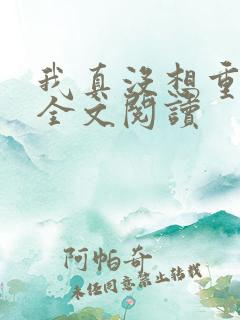 我真没想重
全文閱讀
阿帕奇
未经同意禁止转载